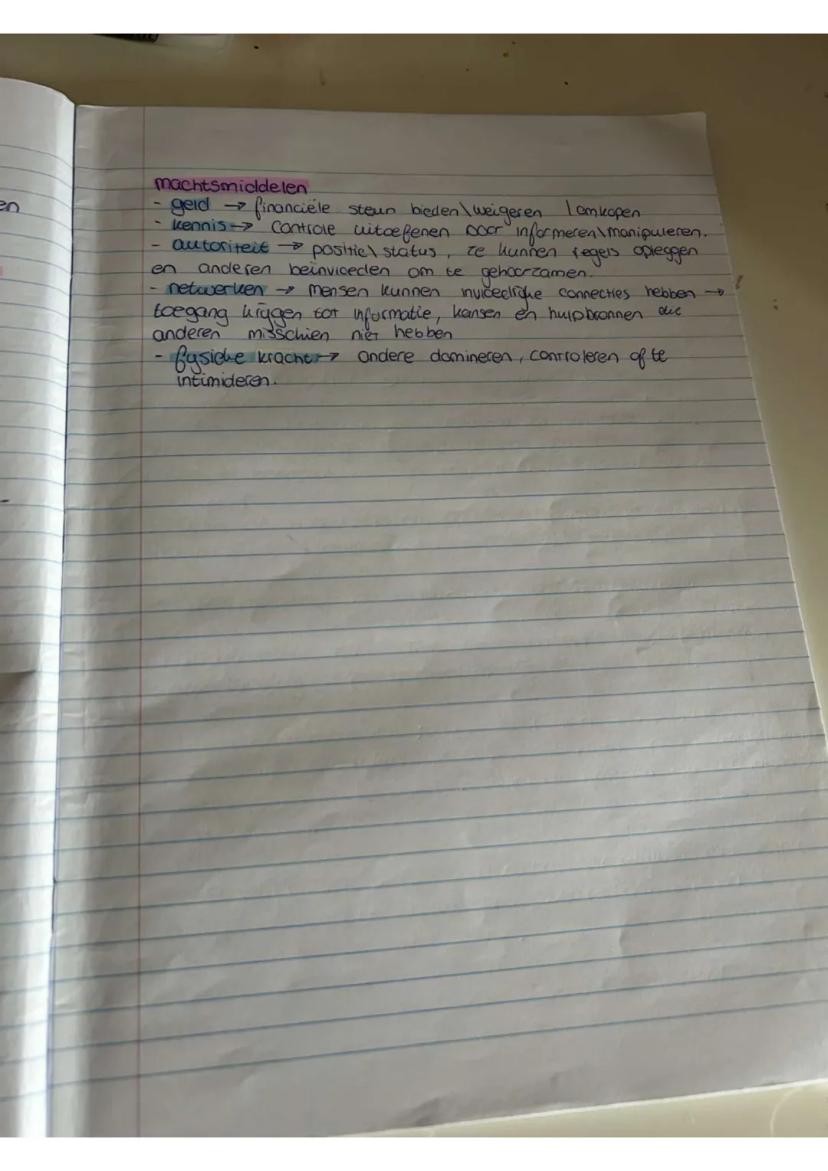 en
machtsmiddelen
- geld → financiële steun bieden\weigeren \omkopen
- kennis → controle uitoefenen door informeren\manipuleren.
- autoriteit → positie\status, ze kunnen regels opleggen
en anderen beïnvloeden om te gehoorzamen.
- netwerken → mensen kunnen invloedrijke connecties hebben →
toegang krijgen tot informatie, kansen en hulpbronnen die
anderen misschien niet hebben
- fysieke kracht → andere domineren, controleren of te
intimideren.